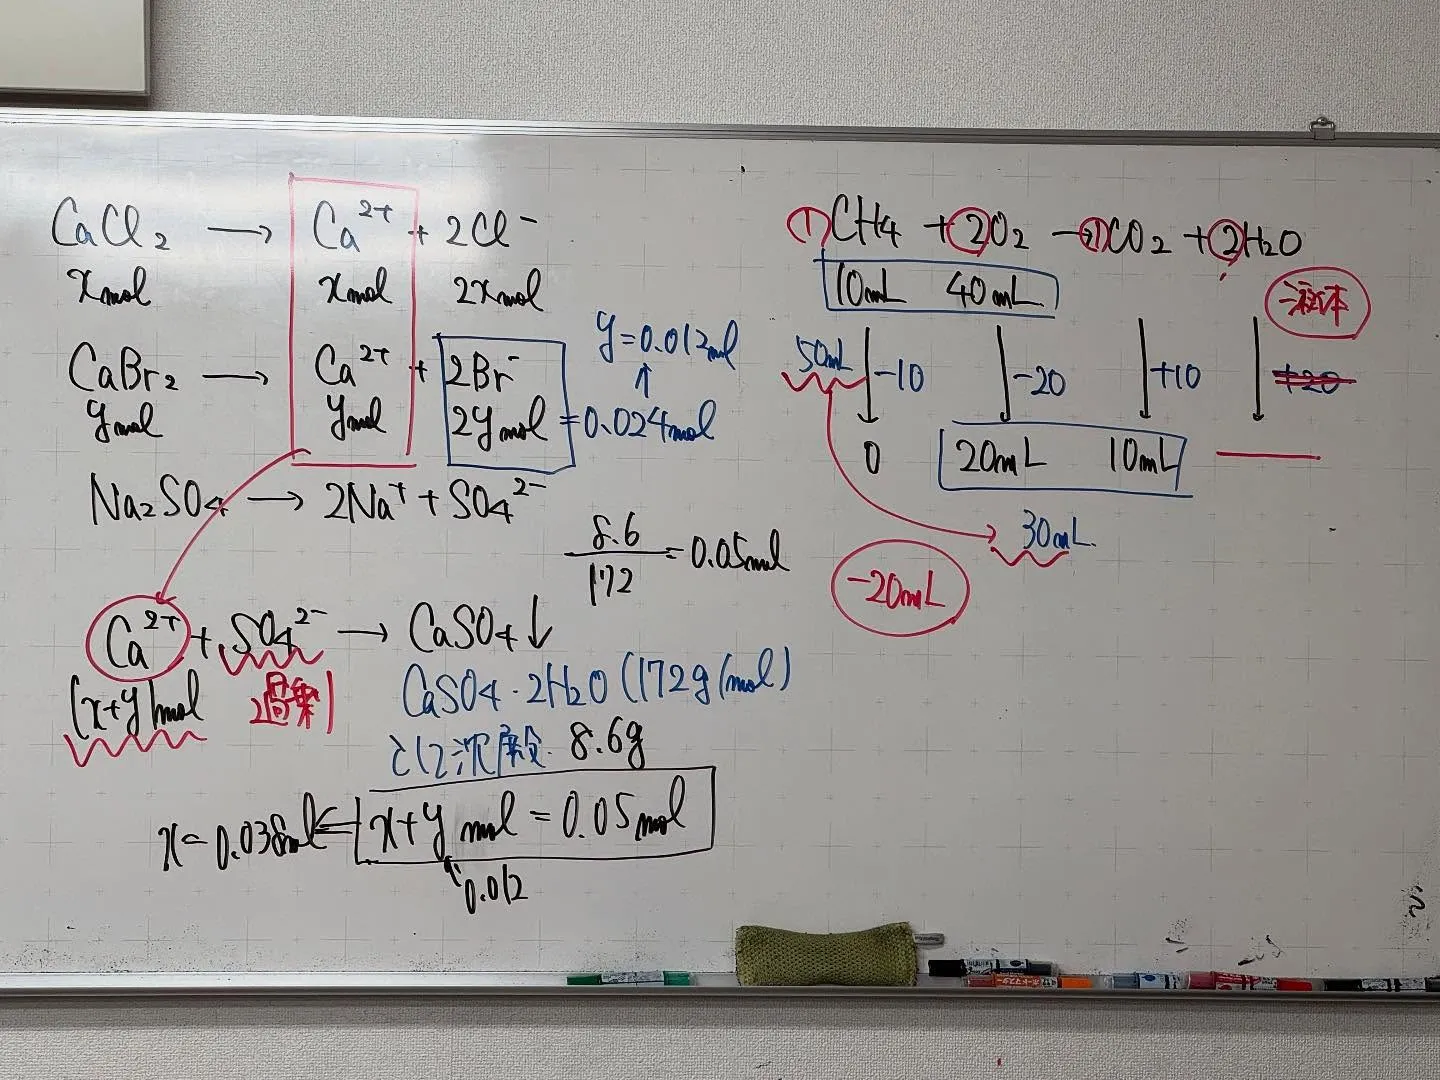 CaCl₂ → Ca²⁺ + 2Cl⁻
xmol xmol 2xmol
CaBr₂ → Ca²⁺ + 2Br⁻
ymol ymol 2ymol = 0.024mol
↑
y=0.012mol
Na₂SO₄ → 2Na⁺ + SO₄²⁻
8.6/172 = 0.05mol
Ca²⁺ + SO₄²⁻ → CaSO₄↓
(x+y)mol 過剰
CaSO₄・2H₂O (172g/mol)
として沈殿 8.6g
x=0.038mol ⇐ x+y mol = 0.05mol
0.012
①CH₄ + ②O₂ → ①CO₂ + ②H₂O
10mL 40mL
液体
50mL -10 -20 +10 +20
0 20mL 10mL
30mL
-20mL